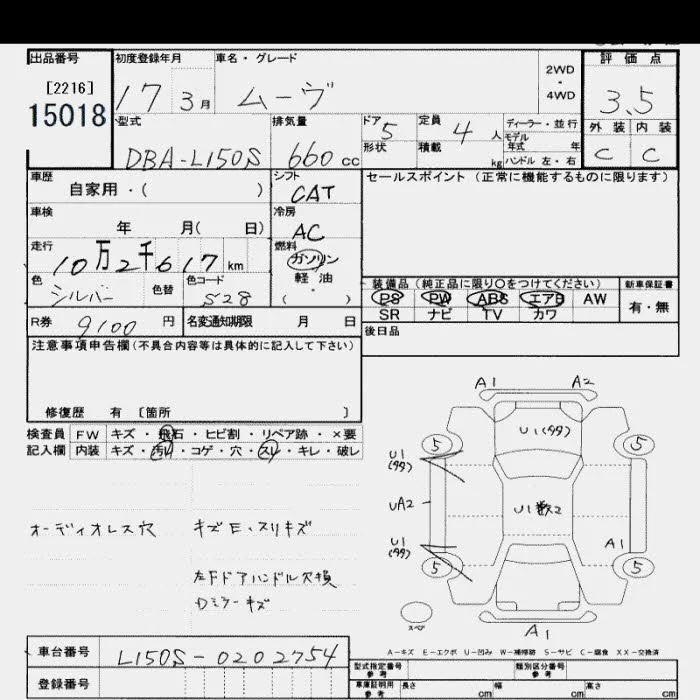 出品番号 初度登録年月 車名・グレード 評価点
[2216]
15018
17 3月 ムーヴ 2WD・4WD 3.5
型式 排気量 ドア 定員 ディーラー・並行 外装 内装
DBA-L150S 660cc 5 4人 モデル年式 年 C C
形状 積載 kg ハンドル 左・右
車歴 シフト セールスポイント (正常に機能するものに限ります)
自家用・( ) CAT
車検 冷房
年 月( 日) AC
走行 燃料
10万2千617km ガソリン
軽油
( ・ )
色 色替 色コード
シルバー 528
装備品 (純正品に限り○をつけてください) 新車保証書
PS PW ABS エアB AW 有・無
SR ナビ TV カワ
R券 9100円 名変通知期限 月 日 後日品
注意事項申告欄(不具合内容等は具体的に記入して下さい)
修復歴 有 〔箇所 〕
検査員 FW キズ・飛石・ヒビ割・リペア跡・×要
記入欄 内装 キズ・汚れ・コゲ・穴・スレ・キレ・破レ
オーディオレス穴 キズE、スリキズ
左Fドアハンドル欠損
Dミラーキズ
A1 A2
U1(タタ)
5 5
U1
(タタ)
UA2 U1数2
U1
(タタ)
A1
5 5
スペア
A1
A-キズ E-エクボ U-凹み W-補修跡 S-サビ C-腐食 XX-交換済
車台番号 L150S-0202754
型式指定番号 参考 類別区分番号 参考
登録番号 車庫証明用 参考 長さ cm 幅 cm 高さ cm